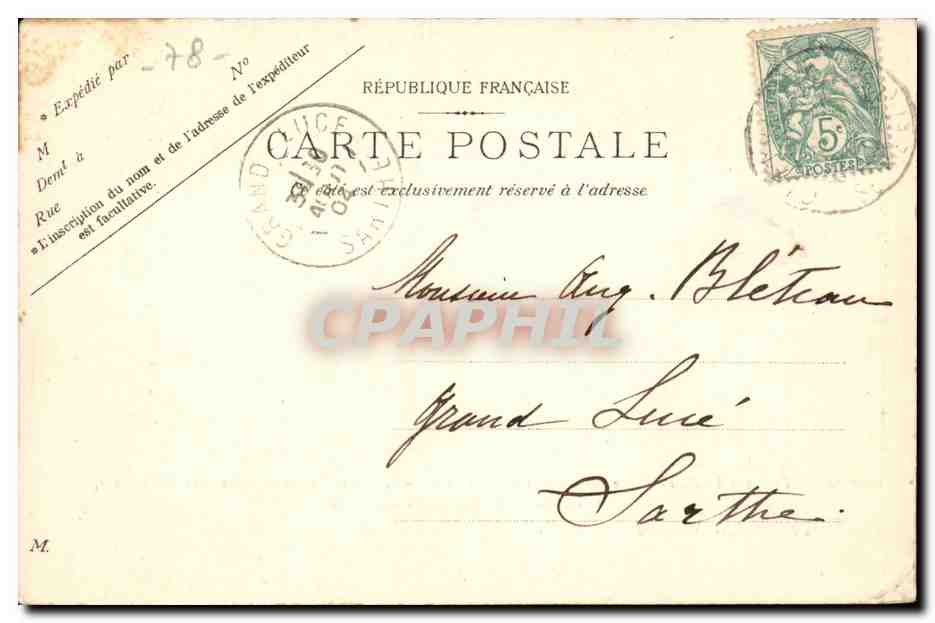 - 78 -
* Expédié par
M
N°
Demt à
Rue
*L'inscription du nom et de l'adresse de l'expéditeur
est facultative.
RÉPUBLIQUE FRANÇAISE
CARTE POSTALE
Ce côté est exclusivement réservé à l'adresse.
GRAND-LUCÉ
AOUT
04
SARTHE
5c
POSTES
Monsieur Aug. Bléteau
CPAPHIL
Grand Lucé
Sarthe.
M.